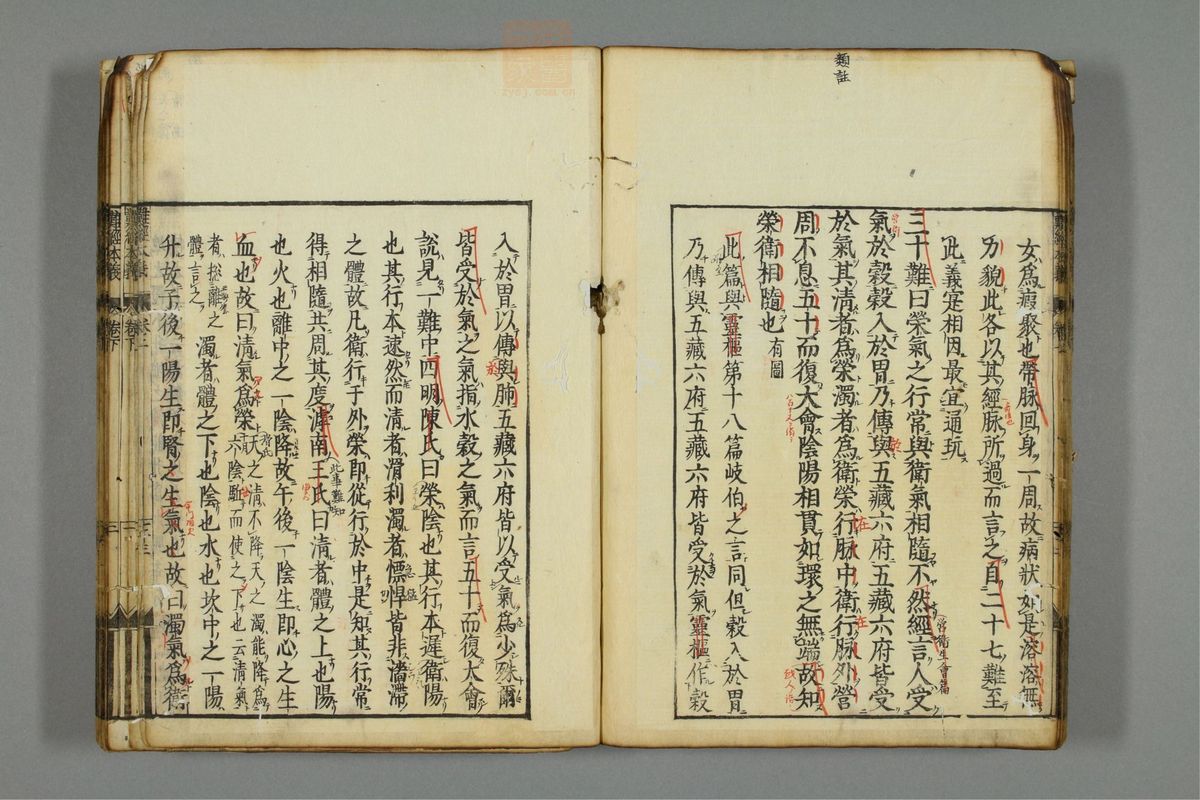 類註
女爲瘕聚也帶脉回身一周故病狀如是溶溶無
力貌此各以其經脉所過而言之自二十七難至
此義寔相因最宜通玩
三十難曰榮氣之行常與衛氣相隨不然經言人受
氣於穀穀入於胃乃傳與五藏六府五藏六府皆受
於氣其清者爲榮濁者爲衛榮行脉中衛行脉外營
周不息五十而復大會陰陽相貫如環之無端故知
榮衛相隨也 有圖
此篇與靈樞第十八篇岐伯之言同但穀入於胃
乃傳與五藏六府五藏六府皆受於氣靈樞作穀
入於胃以傳與肺五藏六府皆以受氣爲少殊爾
皆受於氣之氣指水穀之氣而言五十而復大會
說見一難中四明陳氏曰榮陰也其行本遲衛陽
也其行本速然而清者滑利濁者慓悍皆非濇滯
之體故凡衛行于外榮即從行於中是知其行常
得相隨共周其度滹南王氏曰清者體之上也陽
也火也離中之一陰降故午後一陰生即心之生
血也故曰清氣爲榮 天之清不降天之濁能降爲
六陰驅而使之下也云清氣
者揔離之
體言之 濁者體之下也陰也水也坎中之一陽
升故子後一陽生即腎之生氣也故曰濁氣爲衛
難經本義
卷下